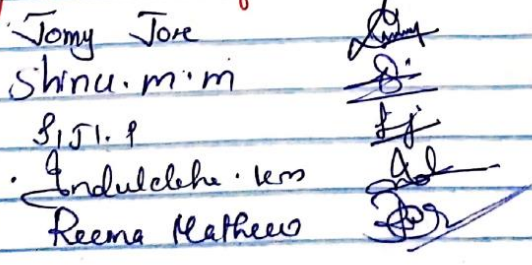 Jomy Jose
Shinu.m.m
SIJI.P
Indulekha.
Reema Mathews